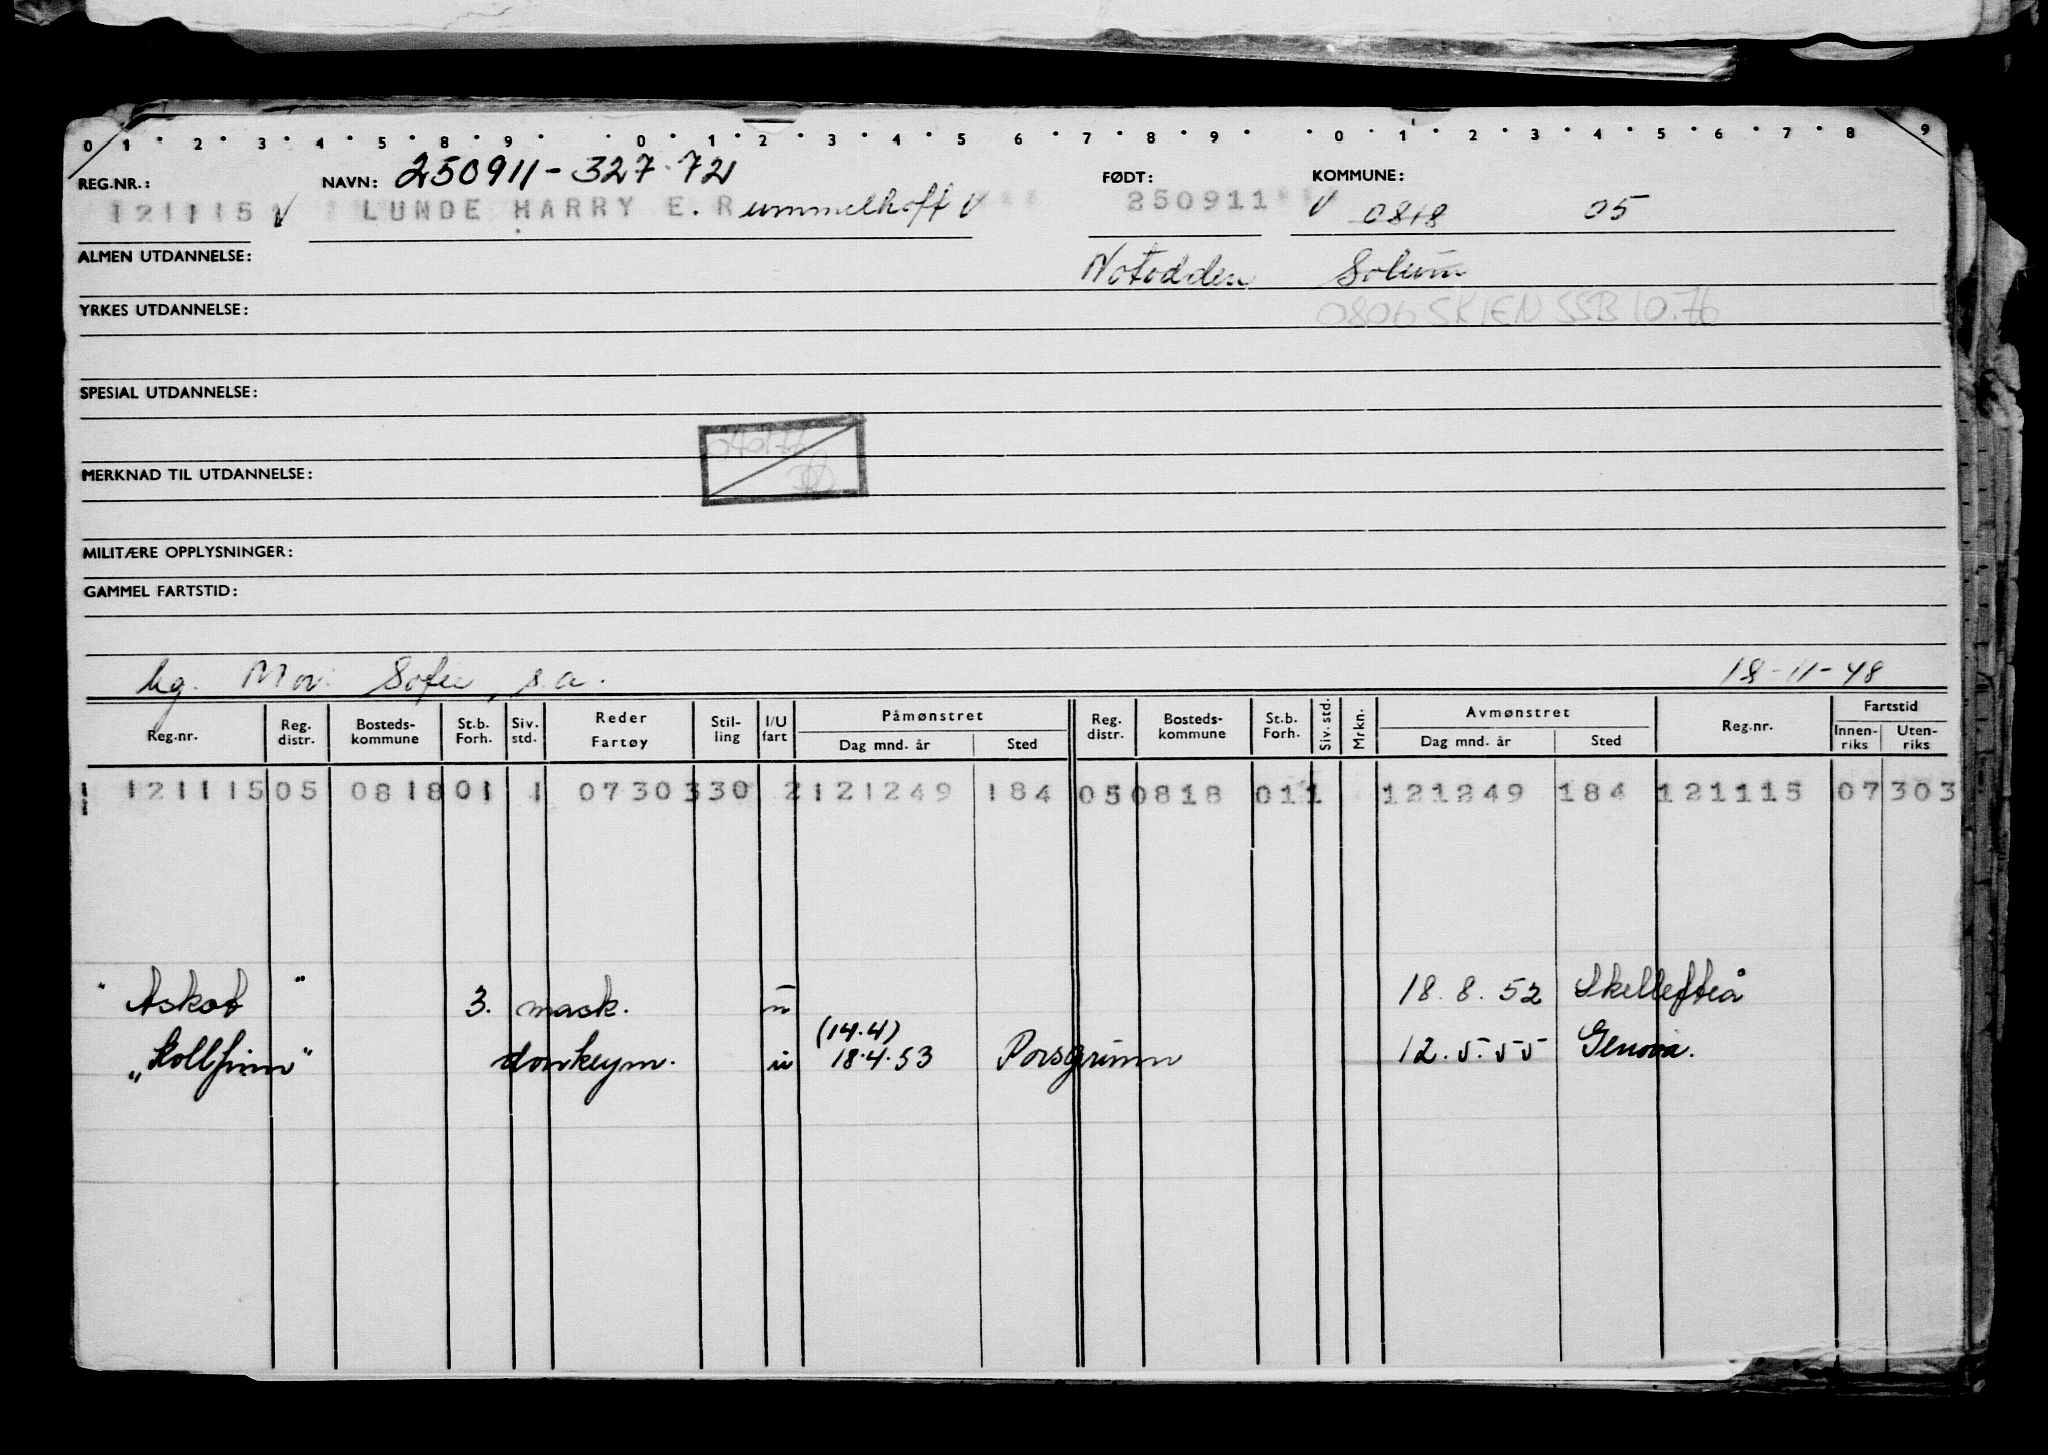 0 1 2 3 4 5 8 9 0 1 2 3 4 5 6 7 8 9 0 1 2 3 4 5 6 7 8 9
REG.NR.: NAVN: 250911-327 72 FØDT: KOMMUNE:
121115 V LUNDE HARRY E. Rummelhoff V 250911 V 0818 05
ALMEN UTDANNELSE: Notodden Solum
YRKES UTDANNELSE: 0806 SKIEN SSB 10.76
SPESIAL UTDANNELSE:
MERKNAD TIL UTDANNELSE:
MILITÆRE OPPLYSNINGER:
GAMMEL FARTSTID:
hg. Mor: Sofie, s.a. 18-11-48
Reg.nr. Reg. distr. Bosteds-kommune St.b. Forh. Siv. std. Reder Fartøy Stil-ling I/U fart Påmønstret Dag mnd. år Sted Reg. distr. Bosteds-kommune St.b. Forh. Siv. std. Mrkn. Avmønstret Dag mnd. år Sted Reg.nr. Fartstid Innen-riks Uten-riks
121115 05 0818 01 1 07303 30 2 121249 184 05 0818 01 1 121249 184 121115 07 303
"Askot" 3. mask. u 18.8.52 Skellefteå
(14.4)
"Kollfinn" donkeym. u 18.4.53 Porsgrunn 12.5.55 Genova.